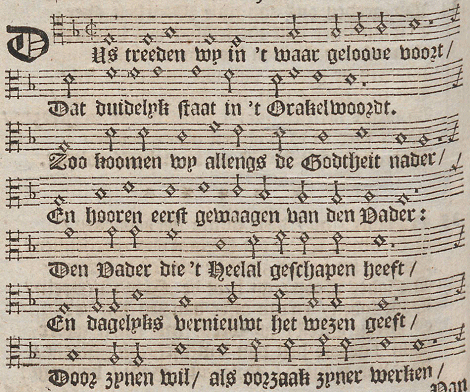 DUs treeden wy in 't waar geloove voort/
Dat duidelyk staat in 't Orakelwoordt.
Zoo koomen wy allengs de Godtheit nader/
En hooren eerst gewaagen van den Vader:
Den Vader die 't Heelal geschapen heeft/
En dagelyks vernieuwt het wezen geeft/
Door zynen wil/ als oorzaak zyner werken/
Van